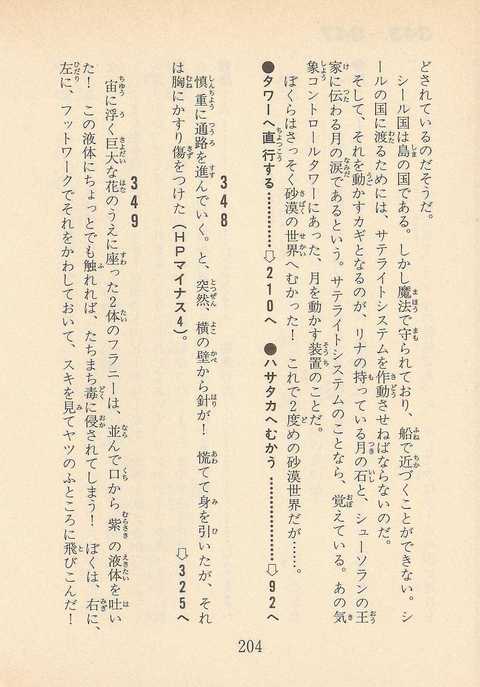 どされているのだそうだ。
シール国は島の国である。しかし魔法で守られており、船で近づくことができない。シ
ールの国に渡るためには、サテライトシステムを作動させねばならないのだ。
そして、それを動かすカギとなるのが、リナの持っている月の石と、シューソランの王
家に伝わる月の涙であるという。サテライトシステムのことなら、覚えている。あの気
象コントロールタワーにあった、月を動かす装置のことだ。
ぼくらはさっそく砂漠の世界へむかった！　これで2度めの砂漠世界だが……。
●タワーへ直行する…………⇨210へ　●ハサタカへむかう…………⇨92へ
348
慎重に通路を進んでいく。と、突然、横の壁から針が！　慌てて身を引いたが、それ
は胸にかすり傷をつけた（HPマイナス4）。
⇨325へ
349
宙に浮く巨大な花のうえに座った2体のフラニーは、並んで口から紫の液体を吐い
た！　この液体にちょっとでも触れれば、たちまち毒に侵されてしまう！　ぼくは、右に、
左に、フットワークでそれをかわしておいて、スキを見てヤツのふところに飛びこんだ！
204